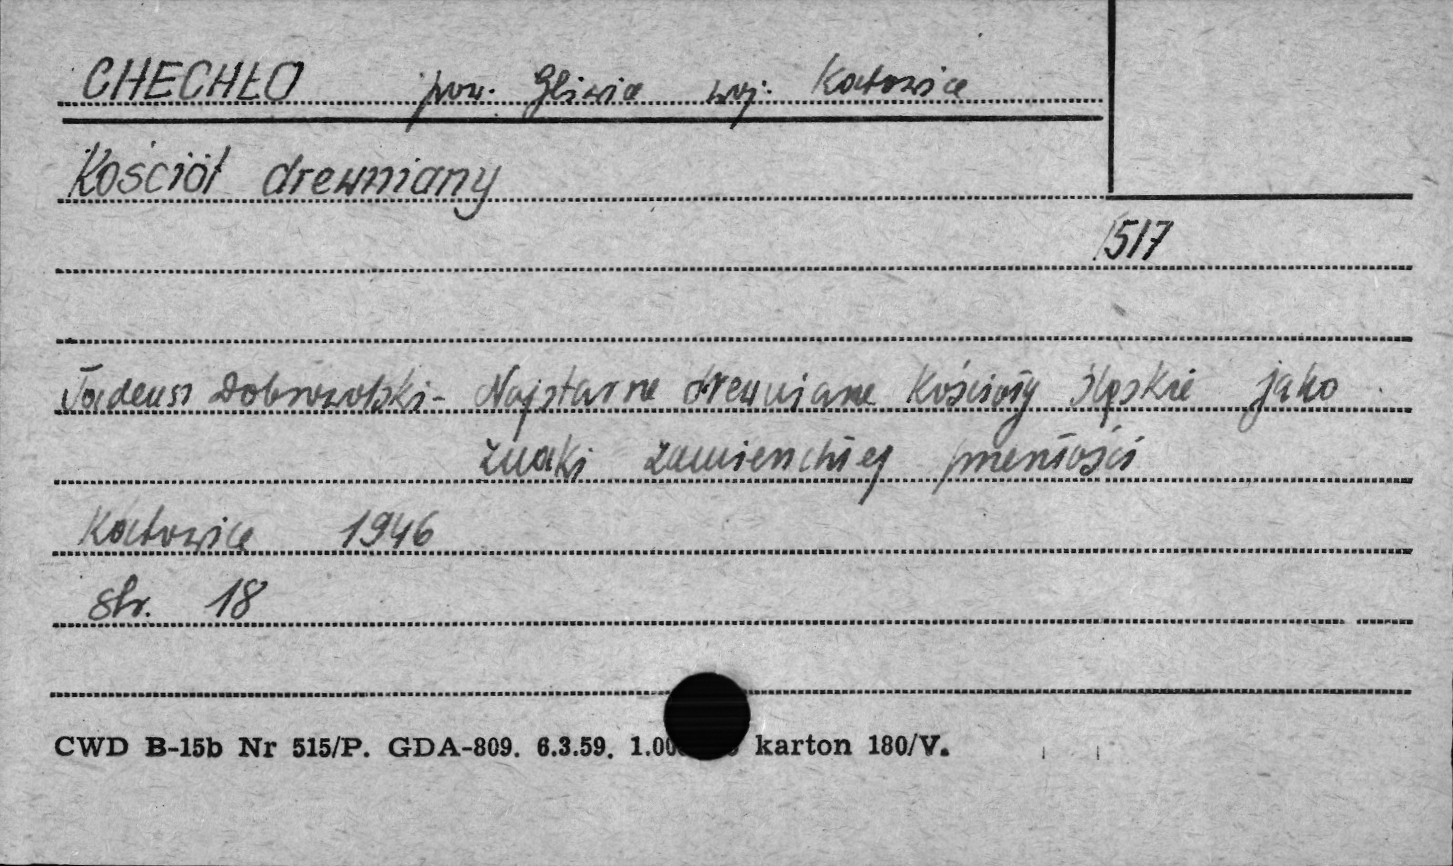 CHECHŁO pow. Gliwice woj. Katowice
Kościół drewniany
517
Tadeusz Dobrowolski - Najstarsze drewniane Kościoły śląskie jako
znaki zamierzchłej przeszłości
Katowice 1946
str. 18
CWD B-15b Nr 515/P. GDA-809. 6.3.59. 1.00 karton 180/V.